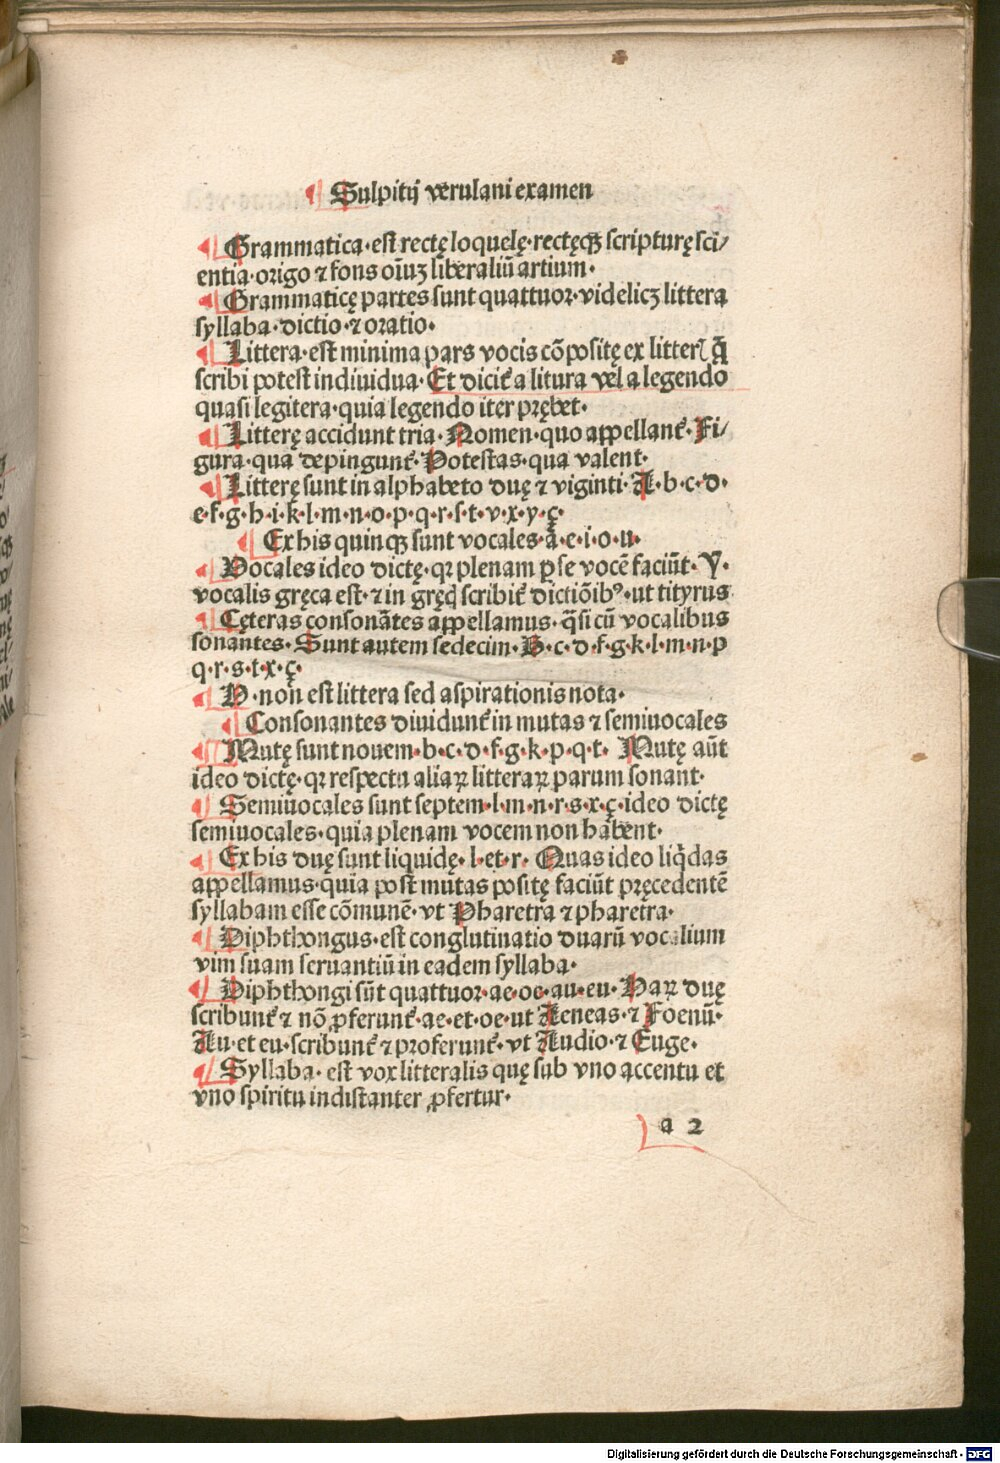 ¶ Sulpitij verulani examen
¶ Grammatica·est rectę loquelę·rectęqꝫ scripturę sci/
entia·origo ⁊ fons oi᷑uꝫ liberaliū artium·
¶ Grammaticę partes sunt quattuor·videlicꝫ littera
syllaba·dictio·⁊ oratio·
¶ Littera·est minima pars vocis cōpositę ex litteꝭ q̄
scribi potest indiuidua· Et dicit᷑ a litura vel a legendo
quasi legitera·quia legendo iter prębet·
¶ Litterę accidunt tria· Nomen·quo appellant᷑· Fi/
gura·qua depingunt᷑· Potestas·qua valent·
¶ Litterę sunt in alphabeto duę ⁊ viginti· A·b·c·d·
e·f·g·h·i·k·l·m·n·o·p·q·r·s·t·v·x·y·ç·
¶ Ex his quinqꝫ sunt vocales·a·e·i·o·u·
¶ Vocales ideo dictę·qꝛ plenam ꝑ se vocē faciūt· Y·
vocalis gręca est·⁊ in gręcꝭ scribit᷑ dictiōibꝰ·ut tityrus
¶ Cęteras consonātes appellamus·q̄si cū vocalibus
sonantes· Sunt autem sedecim· B·c·d·f·g·k·l·m·n·p
q·r·s·t·x·ç·
¶ H·non est littera sed aspirationis nota·
¶ Consonantes diuidunt᷑ in mutas ⁊ semiuocales
¶ Mutę sunt nouem·b·c·d·f·g·k·p·q·t· Mutę aūt
ideo dictę·qꝛ respectu aliaꝝ litteraꝝ parum sonant·
¶ Semiuocales sunt septem·l·m·n·r·s·x·ç·ideo dictę
semiuocales·quia plenam vocem non habent·
¶ Ex his duę sunt liquidę·l·et·r· Quas ideo liq̇das
appellamus·quia post mutas positę faciūt pręcedentē
syllabam esse cōmunē·vt Pharetra ⁊ pharetra·
¶ Diphthongus·est conglutinatio duarū vocalium
vim suam seruantiū in eadem syllaba·
¶ Diphthongi sūt quattuor·ae·oe·au·eu· Haꝝ duę
scribunt᷑ ⁊ nō ꝓferunt᷑·ae·et·oe·ut Aeneas·⁊ Foenū·
Au·et eu·scribunt᷑ ⁊ proferunt᷑·vt Audio·⁊ Euge·
¶ Syllaba·est vox litteralis quę sub vno accentu et
vno spiritu indistanter ꝓfertur·
a 2
Digitalisierung gefördert durch die Deutsche Forschungsgemeinschaft - DFG